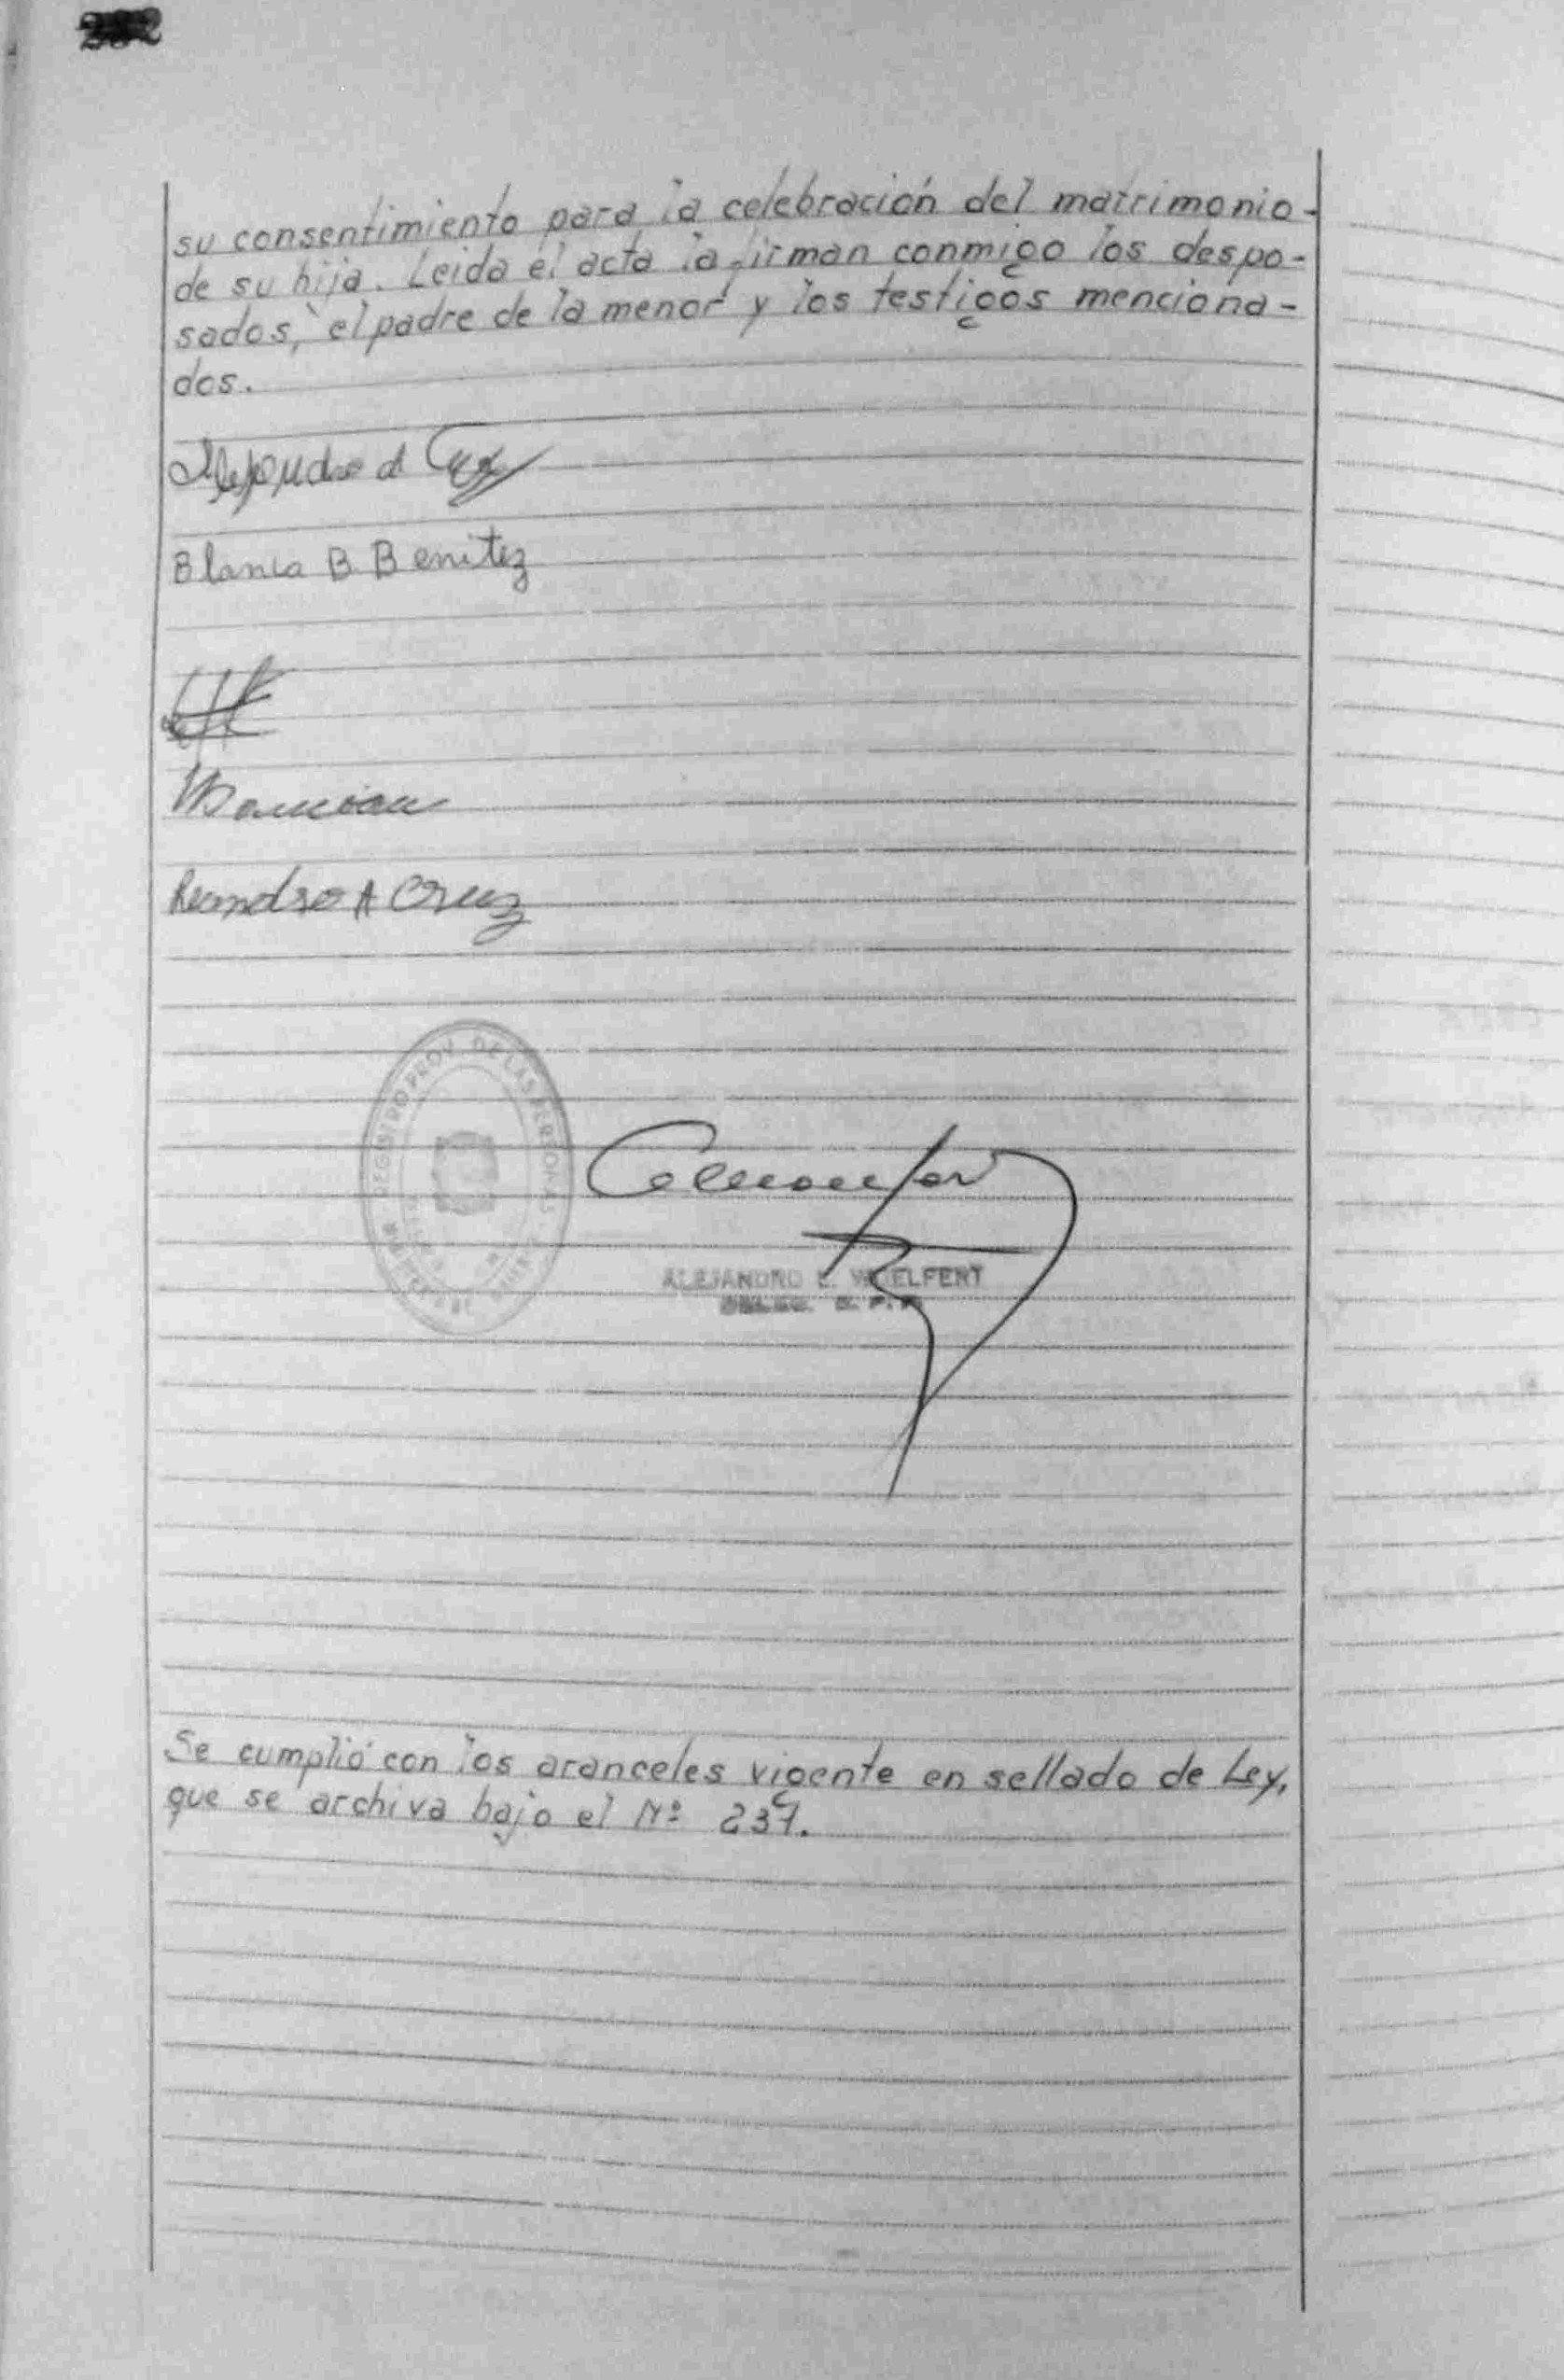 su consentimiento para la celebración del matrimonio-
de su hija. Leida el acta la firman conmigo los despo-
sados, el padre de la menor y los testigos menciona-
dos.
Alejandro A Cruz
Blanca B Benitez
Leandro A Cruz
REGISTRO PROV. DE LAS PERSONAS
ALEJANDRO E. WOELFERT
Se cumplió con los aranceles vigente en sellado de Ley,
que se archiva bajo el Nº 237.